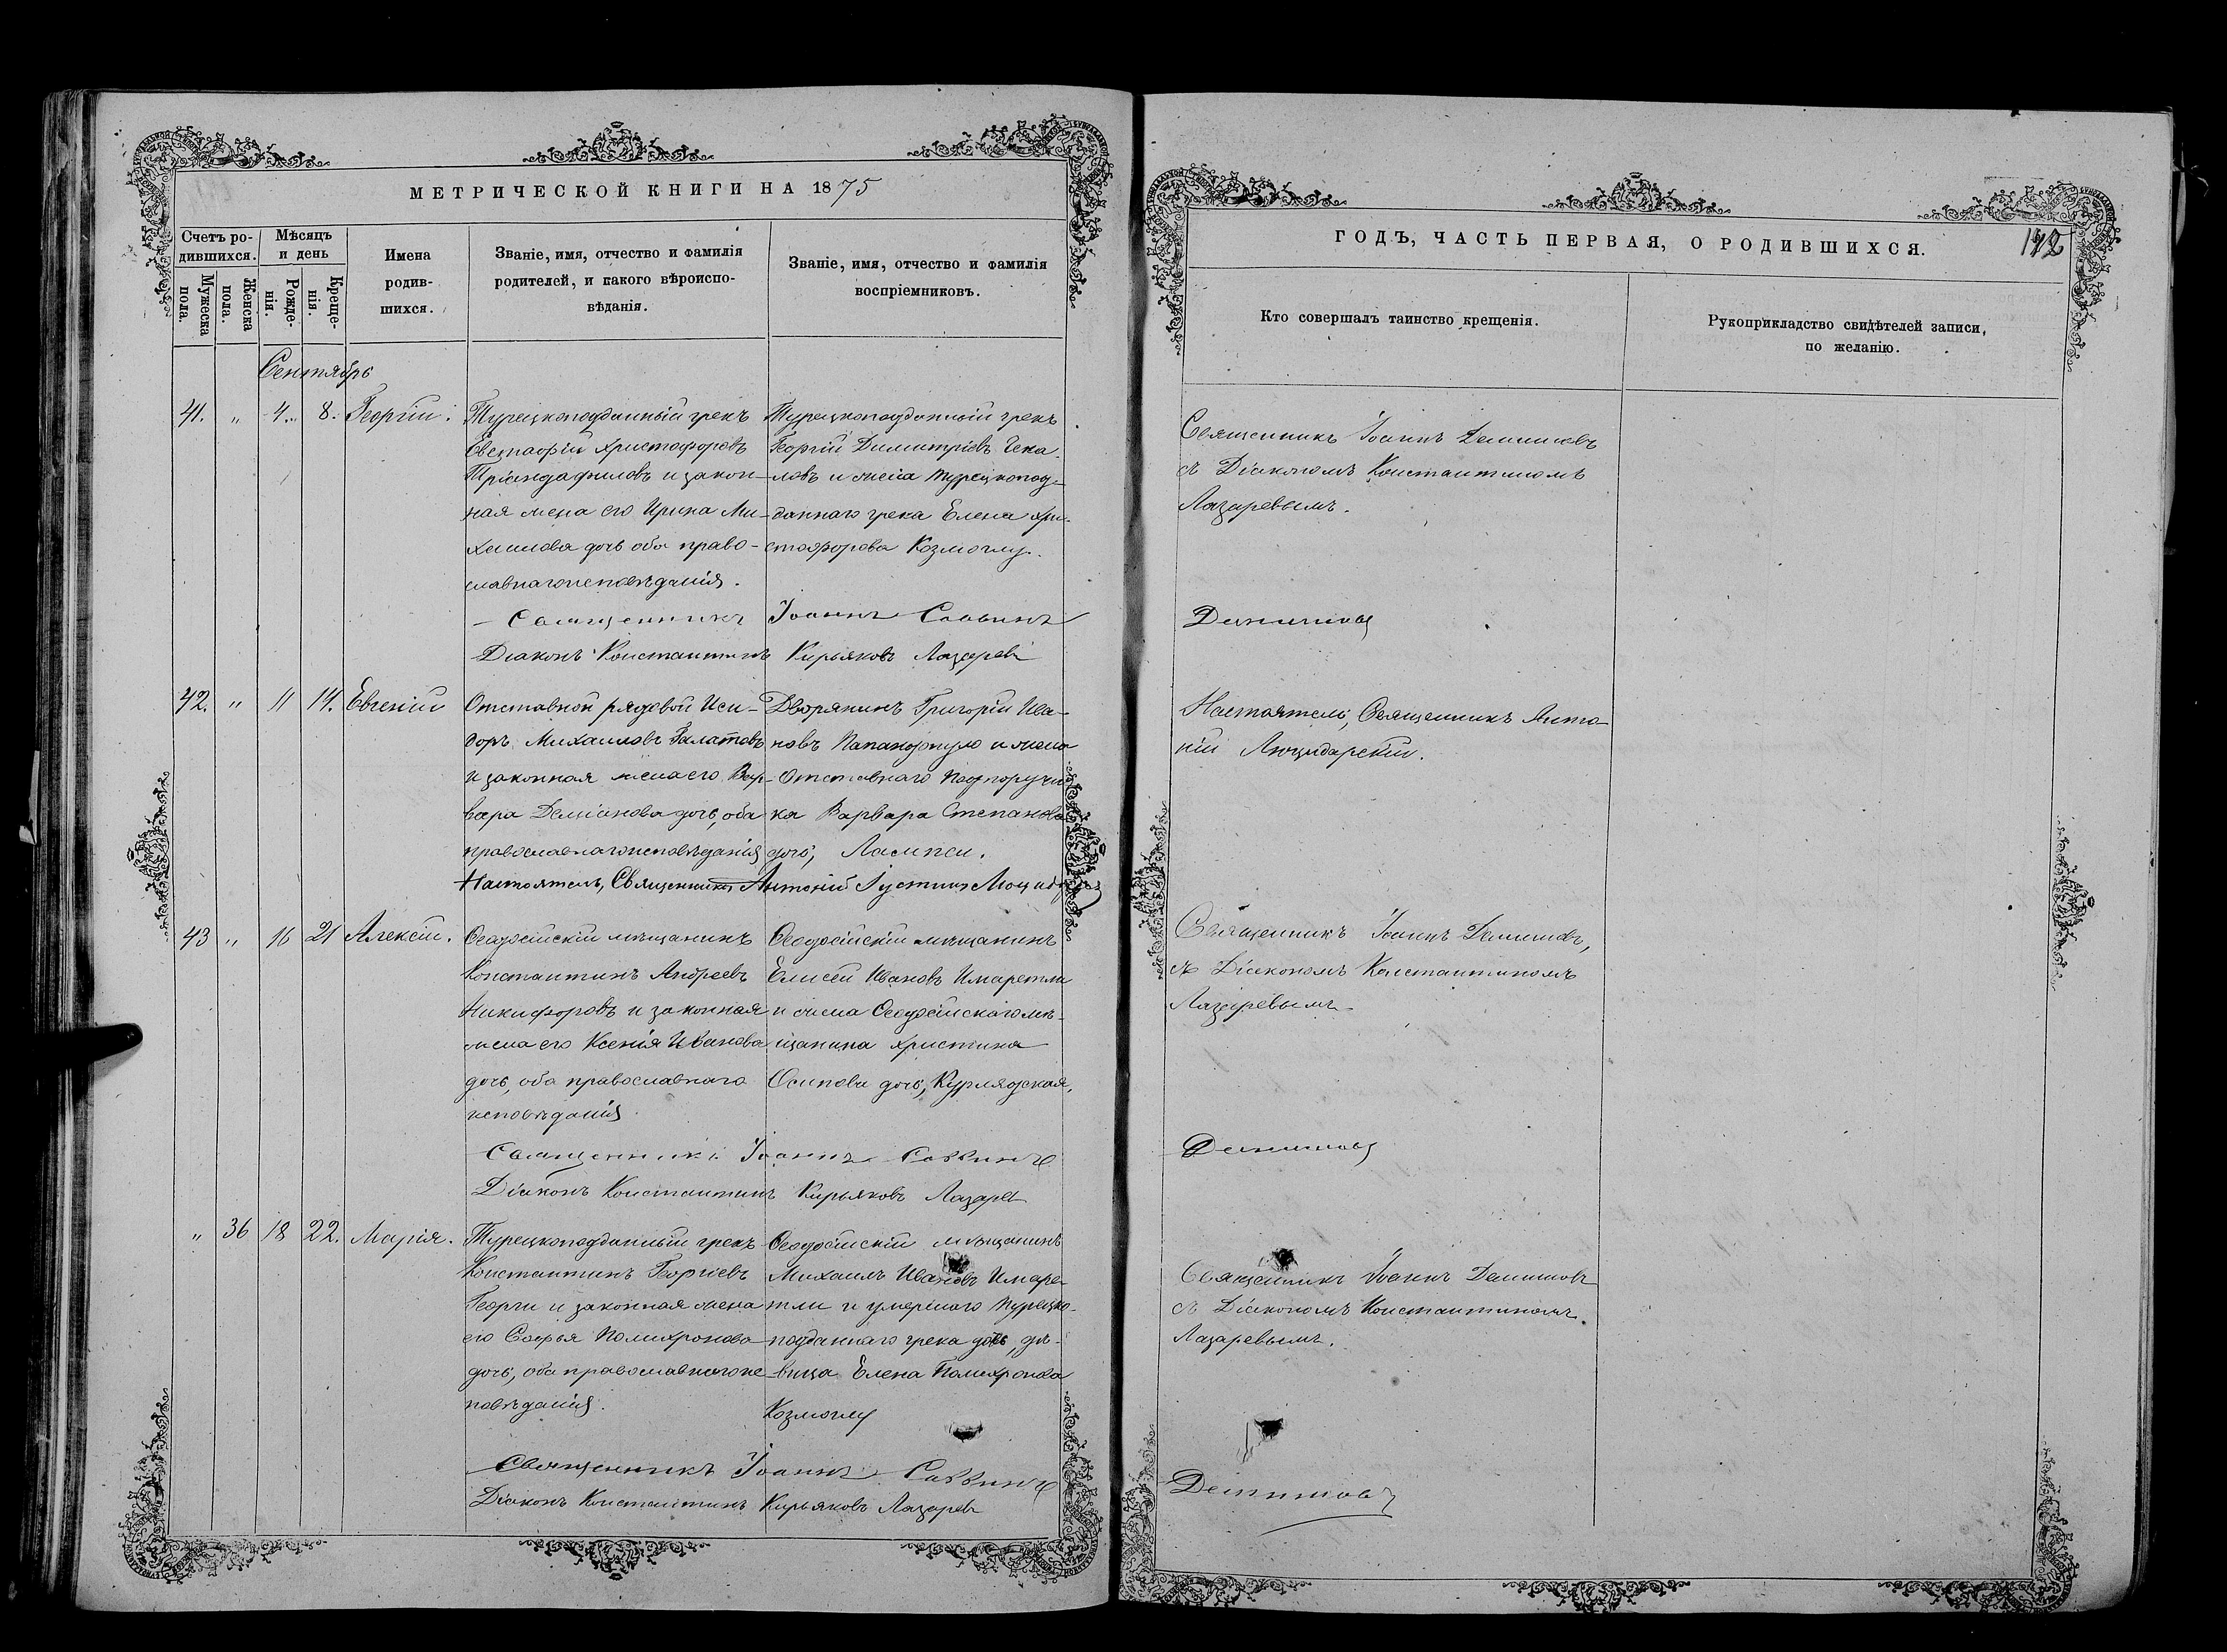 МЕТРИЧЕСКОЙ КНИГИ НА 1875
Счетъ ро-
дившихся.
Мѣсяцъ
и день
Мужеска
пола.
Женска
пола.
Рожде-
нія.
Креще-
нія.
Имена
родив-
шихся.
Званіе, имя, отчество и фамилія
родителей, и какого вѣроиспо-
вѣданія.
Званіе, имя, отчество и фамилія
воспріемниковъ.
Сентябрь
41. " 4. 8. Георгій.
Турецкоподданный грекъ
Евстафій Христофоровъ
Тріандафиловъ и закон-
ная жена его Ирина Ми-
хаилова дочь оба право-
славнаго исповѣданія.
Турецкоподданный грекъ
Георгій Димитріевъ Чека-
ловъ и жена турецкопод-
даннаго грека Елена Хри-
стофорова Козмоглу.
Священникъ Іоаннъ Саввинъ
Діаконъ Константинъ Кирьяковъ Лазаревъ
42. " 11 14. Евгеній
Отставной рядовой Иси-
доръ Михаиловъ Галатовъ
и законная жена его Вар-
вара Деміанова дочь, оба
православнаго исповѣданія
Дворянинъ Григорій Ива-
новъ Папандопуло и жена
Отставнаго Подпоручи
ка Варвара Степанова
дочь, Лампси.
Настоятель, Священникъ Антоній Іустинъ
43 " 16 21 Алексій.
Ѳеодосійскій мѣщанинъ
Константинъ Андреевъ
Никифоровъ и законная
жена его Ксенія Иванова
дочь, оба православнаго
исповѣданія
Ѳеодосійскій мѣщанинъ
Елисей Ивановъ Имаретли
и жена Ѳеодосійскаго мѣ-
щанина Христина
Осипова дочь, Курлядская.
Священникъ Іоаннъ Саввинъ
Діаконъ Константинъ Кирьяковъ Лазаревъ
" 36 18 22. Марія.
Турецкоподданный грекъ
Константинъ Георгіевъ
Георги и законная жена
его Софья Полихронова
дочь, оба православнаго ис
повѣданія.
Ѳеодосійскій мѣщанинъ
Михаилъ Ивановъ Имаре-
тли и умершаго турецко-
подданнаго грека дочь, дѣ-
вица Елена Полихронова
Козмоглу
Священникъ Іоаннъ Саввинъ
Діаконъ Константинъ Кирьяковъ Лазаревъ
ГОДЪ, ЧАСТЬ ПЕРВАЯ, О РОДИВШИХСЯ.
Кто совершалъ таинство крещенія.
Рукоприкладство свидѣтелей записи,
по желанію.
Священникъ Іоаннъ Данииловъ
съ Діакономъ Константиномъ
Лазаревымъ.
Данииловъ
Настоятель, Священникъ Анто-
ній
Священникъ Іоаннъ Данииловъ,
съ Діакономъ Константиномъ
Лазаревымъ
Данииловъ
Священникъ Іоаннъ Данииловъ
съ Діакономъ Константиномъ
Лазаревымъ.
Данииловъ